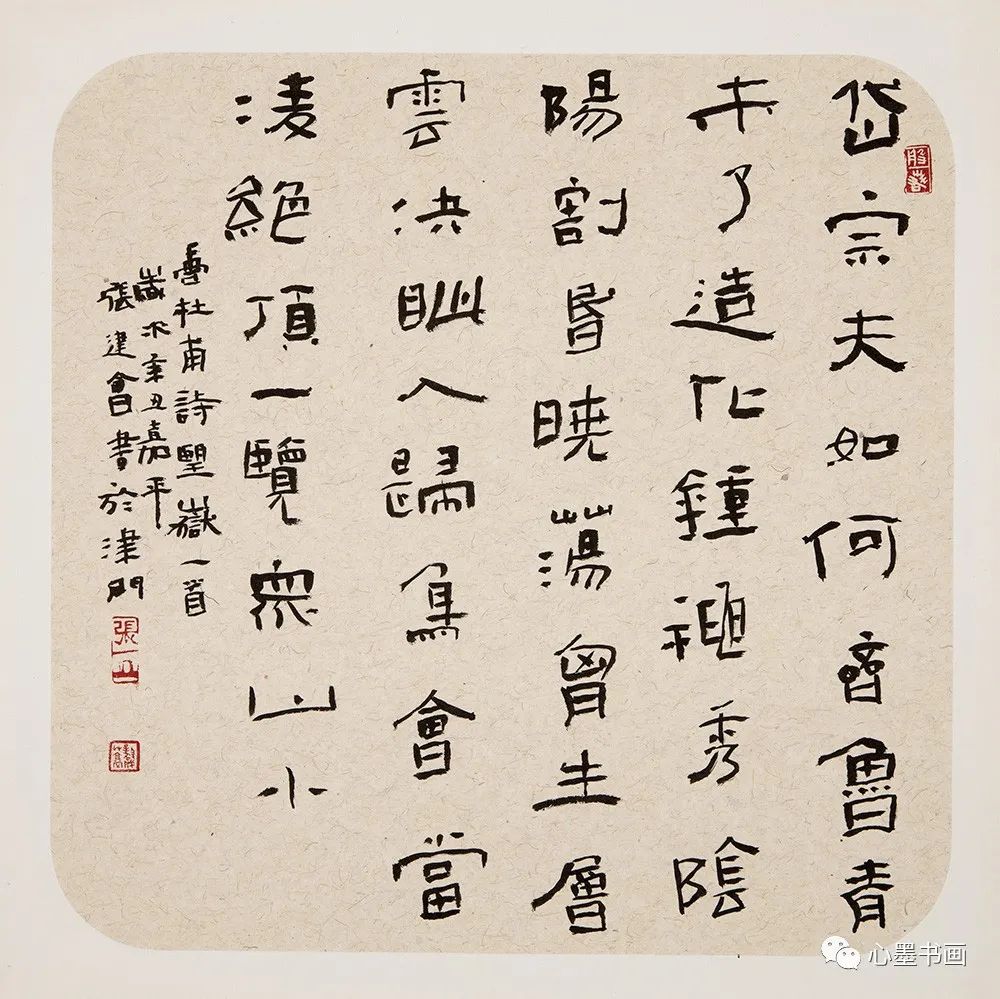 岱宗夫如何齊魯青
未了造化鍾神秀陰
陽割昏曉蕩胷生層
雲決眥入歸鳥會當
凌絕頂一覽眾山小
書杜甫詩望嶽一首
歲次辛丑嘉平
張建會書於津門
心墨书画